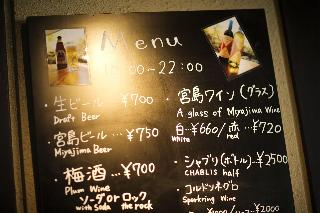 Menu
:00~22:00
・生ビール…¥700
Draft Beer
・宮島ビール…¥750
Miyajima Beer
・梅酒…¥700
Plum Wine
ソーダorロック
with Soda the rock
・宮島ワイン(グラス)
A glass of Miyajima Wine
白…¥660/赤…¥720
white red
・シャブリ(ボトル)…¥2500
CHABLIS half
・コルドンネグロ
Sparkring Wine